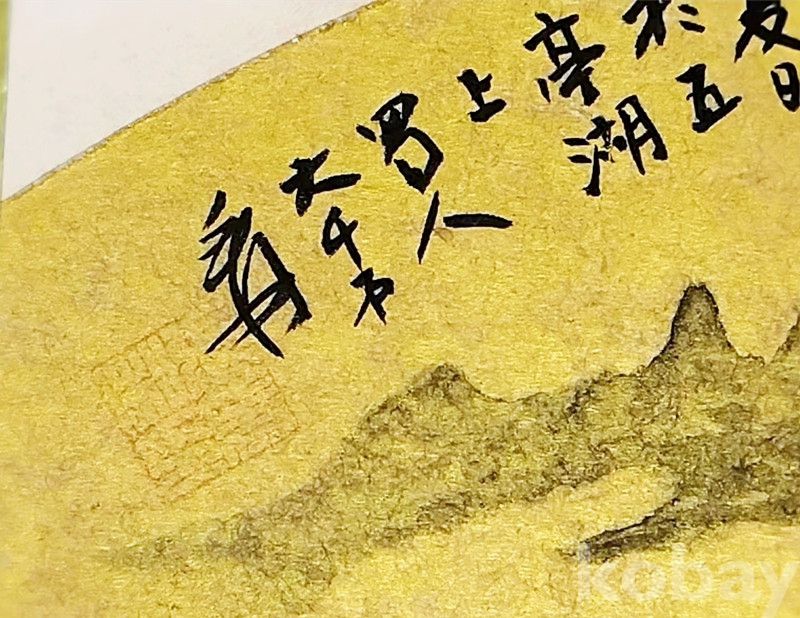 夏日
於五
亭湖
上
蜀人
大千
爰
kobay